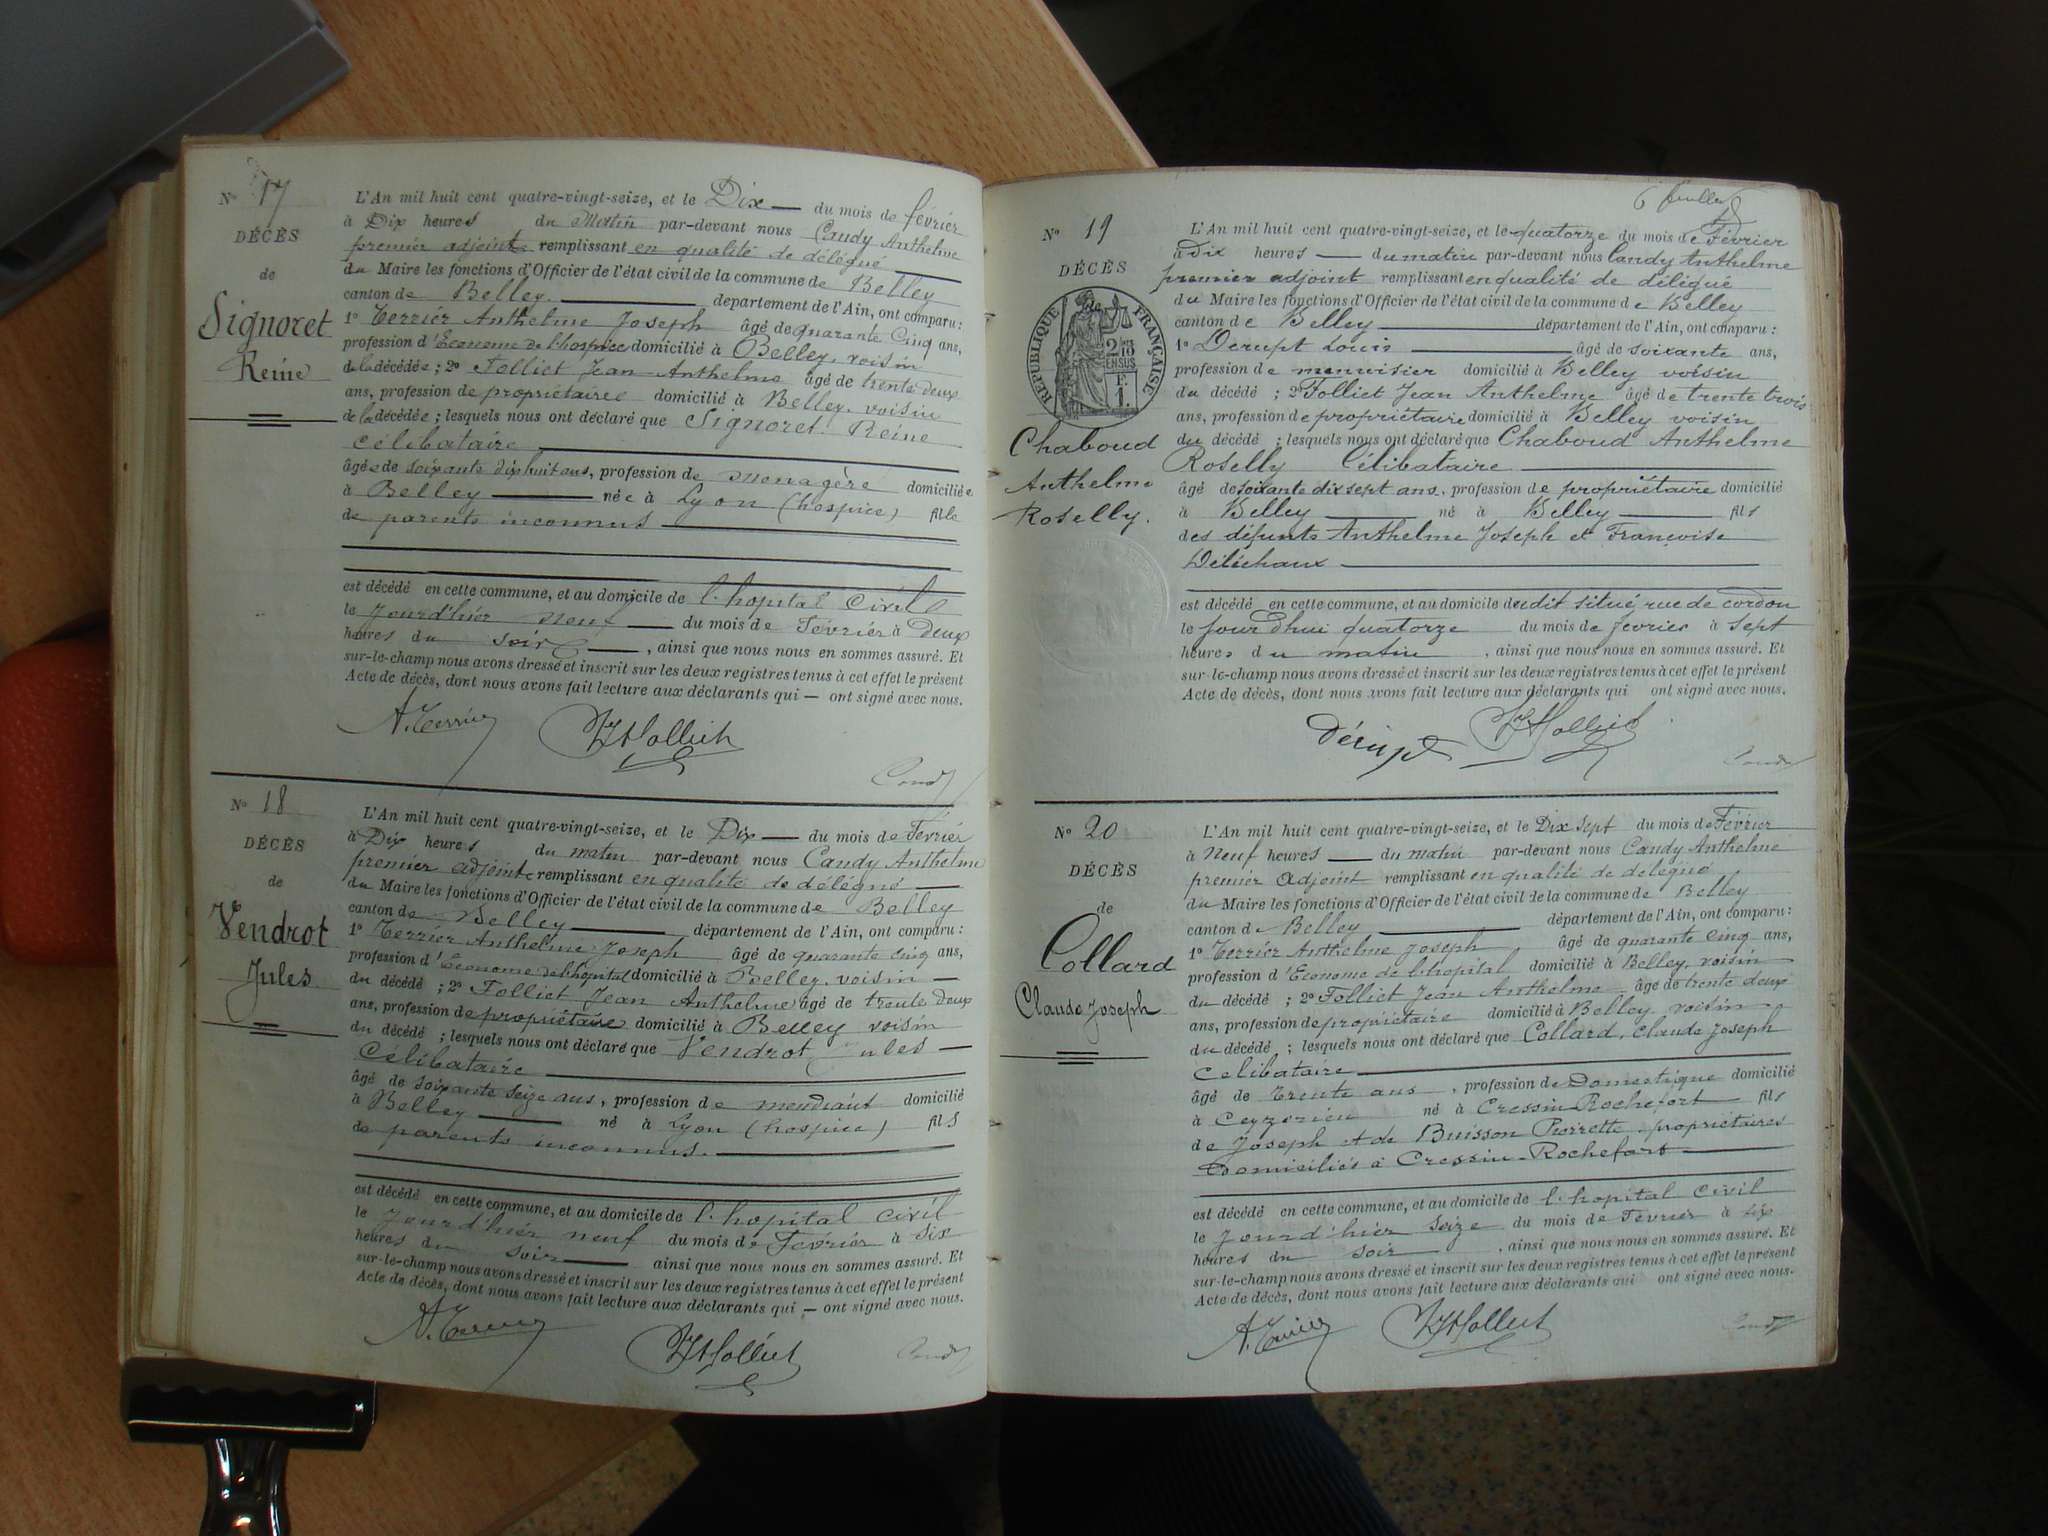 N° 17
DÉCÈS
de
Signoret
Reine
L'An mil huit cent quatre-vingt-seize, et le Dix du mois de février
à Dix heures du Matin par-devant nous Candy Anthelme
premier adjoint remplissant en qualité de délégué
du Maire les fonctions d'Officier de l'état civil de la commune de Belley
canton de Belley département de l'Ain, ont comparu :
1° Terrier Anthelme Joseph âgé de quarante cinq ans,
profession d'Économe de l'hospice domicilié à Belley, voisin
de la décédée ; 2° Folliet Jean Anthelme âgé de trente deux
ans, profession de propriétaire domicilié à Belley, voisin
de la décédée ; lesquels nous ont déclaré que Signoret Reine
célibataire
âgée de soixante dix huit ans, profession de menagère domiciliée
à Belley née à Lyon (hospice) fille
de parents inconnus
est décédé en cette commune, et au domicile de l'hopital civil
le jour d'hier neuf du mois de Février à Deux
heures du soir, ainsi que nous nous en sommes assuré. Et
sur-le-champ nous avons dressé et inscrit sur les deux registres tenus à cet effet le présent
Acte de décès, dont nous avons fait lecture aux déclarants qui — ont signé avec nous.
A. Terrier JA Folliet
Candy
N° 18
DÉCÈS
de
Vendrot
Jules
L'An mil huit cent quatre-vingt-seize, et le Dix du mois de Février
à Dix heures du matin par-devant nous Candy Anthelme
premier adjoint remplissant en qualité de délégué
du Maire les fonctions d'Officier de l'état civil de la commune de Belley
canton de Belley département de l'Ain, ont comparu :
1° Terrier Anthelme Joseph âgé de quarante cinq ans,
profession d'Économe de l'hopital domicilié à Belley, voisin
du décédé ; 2° Folliet Jean Anthelme âgé de trente deux
ans, profession de propriétaire domicilié à Belley voisin
du décédé ; lesquels nous ont déclaré que Vendrot Jules
celibataire
âgé de soixante seize ans, profession de mendiant domicilié
à Belley né à Lyon (hospice) fils
de parents inconnus.
est décédé en cette commune, et au domicile de l'hopital civil
le jour d'hier neuf du mois de Février à six
heures du soir ainsi que nous nous en sommes assuré. Et
sur-le-champ nous avons dressé et inscrit sur les deux registres tenus à cet effet le présent
Acte de décès, dont nous avons fait lecture aux déclarants qui — ont signé avec nous.
A. Terrier JA Folliet
Candy
6 feuillet
N° 19
DÉCÈS
de
RÉPUBLIQUE FRANÇAISE
2/10 EN SUS
F.
1.
Chaboud
Anthelme
Roselly.
L'An mil huit cent quatre-vingt-seize, et le quatorze du mois de Février
à Dix heures du matin par-devant nous Candy Anthelme
premier adjoint remplissant en qualité de délégué
du Maire les fonctions d'Officier de l'état civil de la commune de Belley
canton de Belley département de l'Ain, ont comparu :
1° Derupt Louis âgé de soixante ans,
profession de menuisier domicilié à Belley voisin
du décédé ; 2° Folliet Jean Anthelme âgé de trente trois
ans, profession de propriétaire domicilié à Belley voisin
du décédé ; lesquels nous ont déclaré que Chaboud Anthelme
Roselly Célibataire
âgé de soixante dix sept ans, profession de propriétaire domicilié
à Belley né à Belley fils
des défunts Anthelme Joseph et Françoise
Déléchaux
est décédé en cette commune, et au domicile dudit situé, rue de cordon
le jour d'hui quatorze du mois de fevrier à sept
heures du matin, ainsi que nous nous en sommes assuré. Et
sur-le-champ nous avons dressé et inscrit sur les deux registres tenus à cet effet le présent
Acte de décès, dont nous avons fait lecture aux déclarants qui ont signé avec nous.
Dérupt JA Folliet
Candy
N° 20
DÉCÈS
de
Collard
Claude Joseph
L'An mil huit cent quatre-vingt-seize, et le Dix sept du mois de Février
à Neuf heures du matin par-devant nous Candy Anthelme
premier adjoint remplissant en qualité de délégué
du Maire les fonctions d'Officier de l'état civil de la commune de Belley
canton de Belley département de l'Ain, ont comparu :
1° Terrier Anthelme Joseph âgé de quarante cinq ans,
profession d'Économe de l'hopital domicilié à Belley, voisin
du décédé ; 2° Folliet Jean Anthelme âgé de trente deux
ans, profession de propriétaire domicilié à Belley voisin
du décédé ; lesquels nous ont déclaré que Collard, Claude Joseph
celibataire
âgé de Trente ans, profession de Domestique domicilié
à Ceyzerieu né à Cressin-Rochefort fils
de Joseph et de Buisson Pierrette, propriétaires
Domiciliés à Cressin-Rochefort
est décédé en cette commune, et au domicile de l'hopital civil
le jour d'hier seize du mois de Février à six
heures du soir, ainsi que nous nous en sommes assuré. Et
sur-le-champ nous avons dressé et inscrit sur les deux registres tenus à cet effet le présent
Acte de décès, dont nous avons fait lecture aux déclarants qui ont signé avec nous.
A. Terrier JA Folliet
Candy